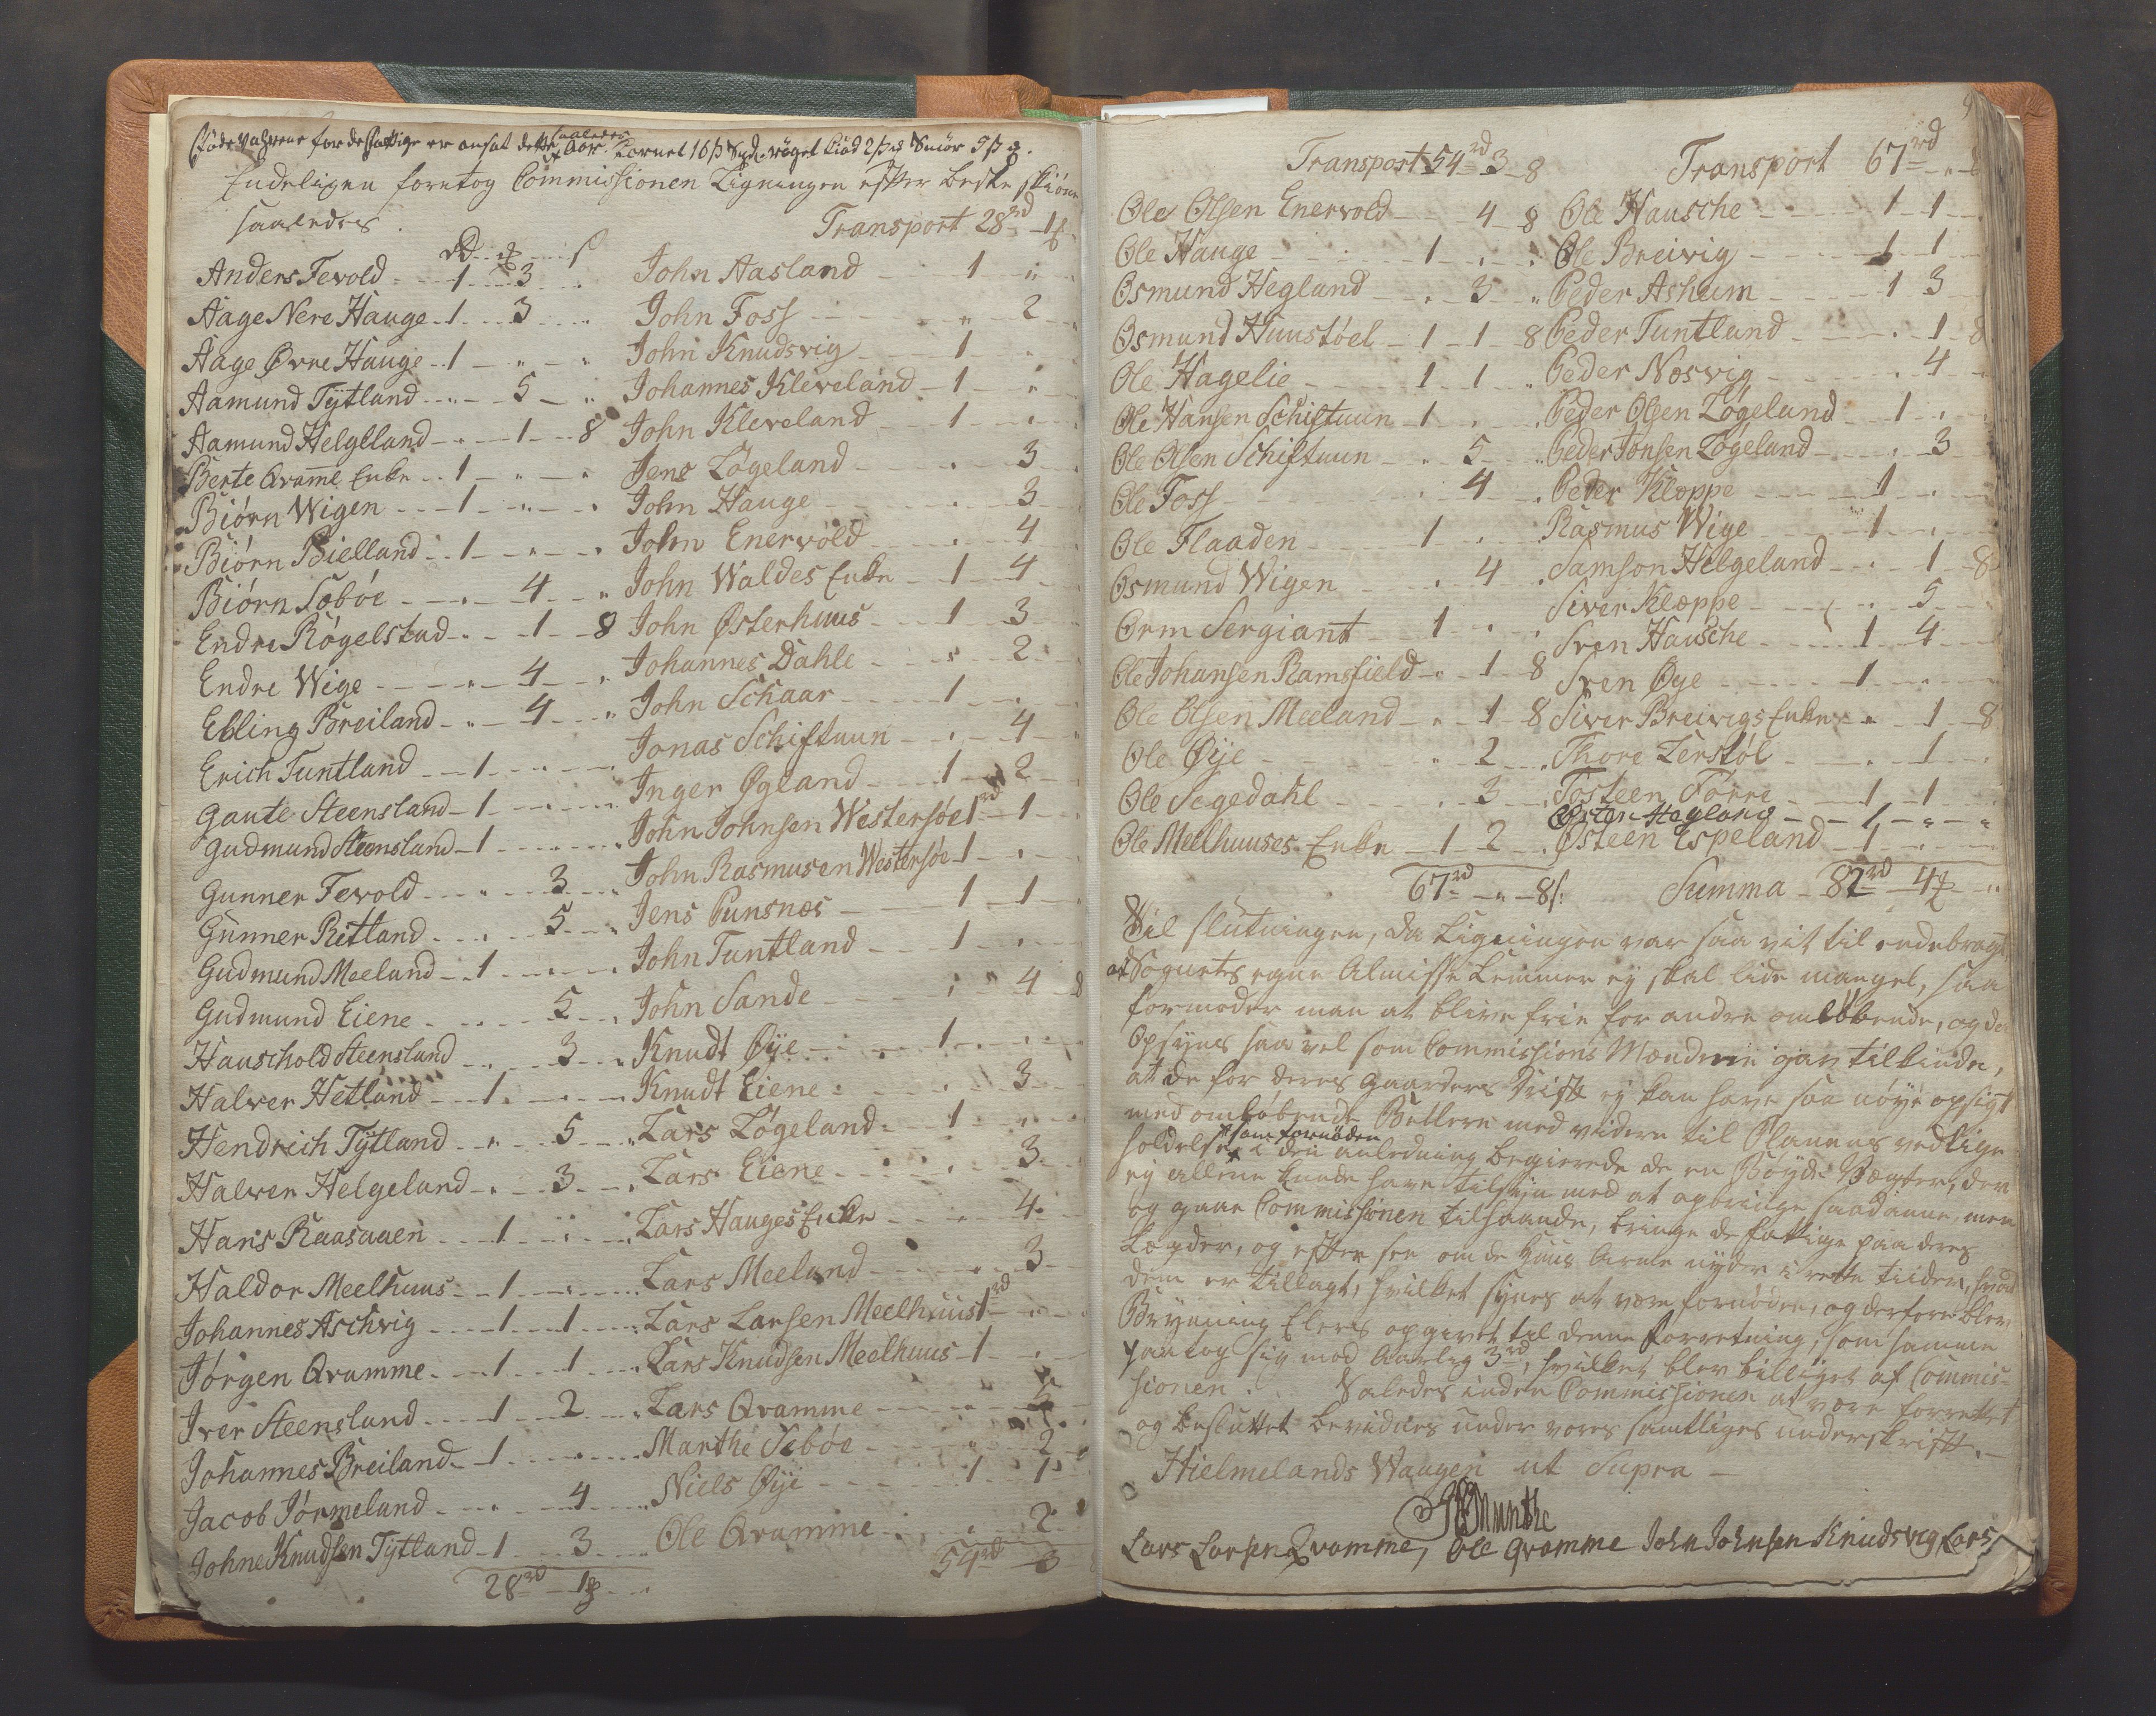 Føde Vahrene for de fattige er ansat dette Aar saaledes Kornet 16 s røget Kiød 2 s Smør 5 s
Endeligen foretog Commissionen Ligningen efter beste skiøn
saaledes.
Transport 28 rd 1
Anders Fevold 1 3
Aage Nere Hauge 1 3
Aage Øvre Hauge 1 " "
Aamund Tÿtland " 5 "
Aamund Helgeland " 1 8
Berte Qvamme Enke 1 " "
Biørn Wigen 1 " "
Biørn Bielland 1 " "
Biørn Søbøe " 4 "
Endre Røgelstad " 1 8
Endre Wige " 4 "
Ebling Breiland " 4 "
Erich Tuntland 1 " "
Gaute Steensland 1 " "
Gudmund Steensland 1 " "
Gunner Fevold " 3 "
Gunner Ritland " 5 "
Gudmund Meeland 1 " "
Gudmund Eiene " 5 "
Hauschold Steensland " 3 "
Halver Hetland 1 " "
Hendrich Tÿtland " 5 "
Halver Helgeland " 3 "
Hans Raasaaen 1 " "
Haldor Meelhuus 1 " "
Johannes Aschvig 1 1 "
Jørgen Qvamme 1 1 "
Iver Steensland 1 2 "
Johannes Breiland 1 " "
Jacob Jørmeland " 4 "
Johne Knudsen Tÿtland 1 3
28 rd 1
John Aasland 1 "
John Foss " 2
John Knudsvig 1
Johannes Kleveland 1 "
John Kleveland 1 "
Jens Løgeland " 3
John Hauge " 3
John Enervold " 4
John Waldes Enke 1 4
John Østerhuus 1 3
Johannes Dahle " 2
John Schaar 1 "
Jonas Schiftuun " 4
Inger Øgland 1 2
John Johnsen Westersøe 1 rd 1
John Rasmusen Westersøe 1 "
Jens Punsnes 1 1
John Tuntland 1 "
John Sande " 4 8
Knudt Øÿe 1 "
Knudt Eiene " 3
Lars Løgeland 1 "
Lars Eiene " 3
Lars Hauges Enke " 4
Lars Meeland " 3
Lars Larsen Meelhuus 1 rd "
Lars Knudsen Meelhuus 1 "
Lars Qvamme " 5
Marthe Sebøe " 2
Niels Øÿe 1 1
Ole Qvamme " 2
54 rd 3
Transport 54 rd 3 8
Ole Olsen Enervold 4 8
Ole Hauge 1 " "
Osmund Hegland " 3 "
Osmund Huustøel 1 1 8
Ole Hagelie 1 1 "
Ole Hansen Schiftuun 1 " "
Ole Olsen Schiftuun " 5 "
Ole Foss " 4 "
Ole Flaaden 1 "
Osmund Wigen " 4 "
Orm Sergiant 1 " "
Ole Johansen Ramsfield " 1 8
Ole Olsen Meeland " 1 8
Ole Øÿe " 2 "
Ole Segedahl " 3 "
Ole Meelhuuses Enke 1 2 "
67 rd " 8 s:
Transport 67 rd " 8
Ole Hausche 1 1
Ole Breivig 1 1
Peder Asheim 1 3
Peder Tuntland " 1 8
Peder Nesvig " 4
Peder Olsen Løgeland 1 "
Peder Jonsen Løgeland " 3
Peder Kleppe 1 "
Rasmus Wige 1 "
Samson Helgeland " 1 8
Siver Kleppe " 5
Sven Hausche 1 4
Sven Øye 1 "
Siver Breivigs Enke " 1 8
Thore Lerstøl " 1
Tosteen Førre 1 1
Østen Hegland 1 " "
Østeen Espeland 1 "
Summa 82 rd 4 "
Til slutningen, da Ligningen var saa vit til endebragt,
at Sognets egne Almisse Lemmer ej skal lide mangel, saa
formoder man at blive frie for andre omløbende, og de
Opsÿns saa vel som Commissions Mændene gav tilkiende,
at de for deres Gaarders Drift ej kan have saa nøÿe opsigt
med omløbende Betlere med videre til Planens vedlige-
holdelse som fornøden, i den anledning begierede de en Bøÿde Vægter, der
ej allene kunde have tilsyn med at opbringe saadanne, men
og gaae Commissionen tilhaande, bringe de fattige paa deres
Legder, og efter see om de Huus Arme nÿder i rette tiider, hvad
dem er tillagt, hvilket sÿnes at være fornøden, og derfore blev
Brynning Elers opgivet til denne Forretning, som samme
paatog sig mod Aarlig 3 rd, hvilket blev billiget af Commis-
sionen. Saaledes inden Commissionen at være forrettet
og besluttet bevidnes under vores samtliges underskrift.
Hielmelands Waagen ut Supra
Munthe
Lars Larsen Qvamme, Ole Qvamme John Johnsen Knudsvig Lars